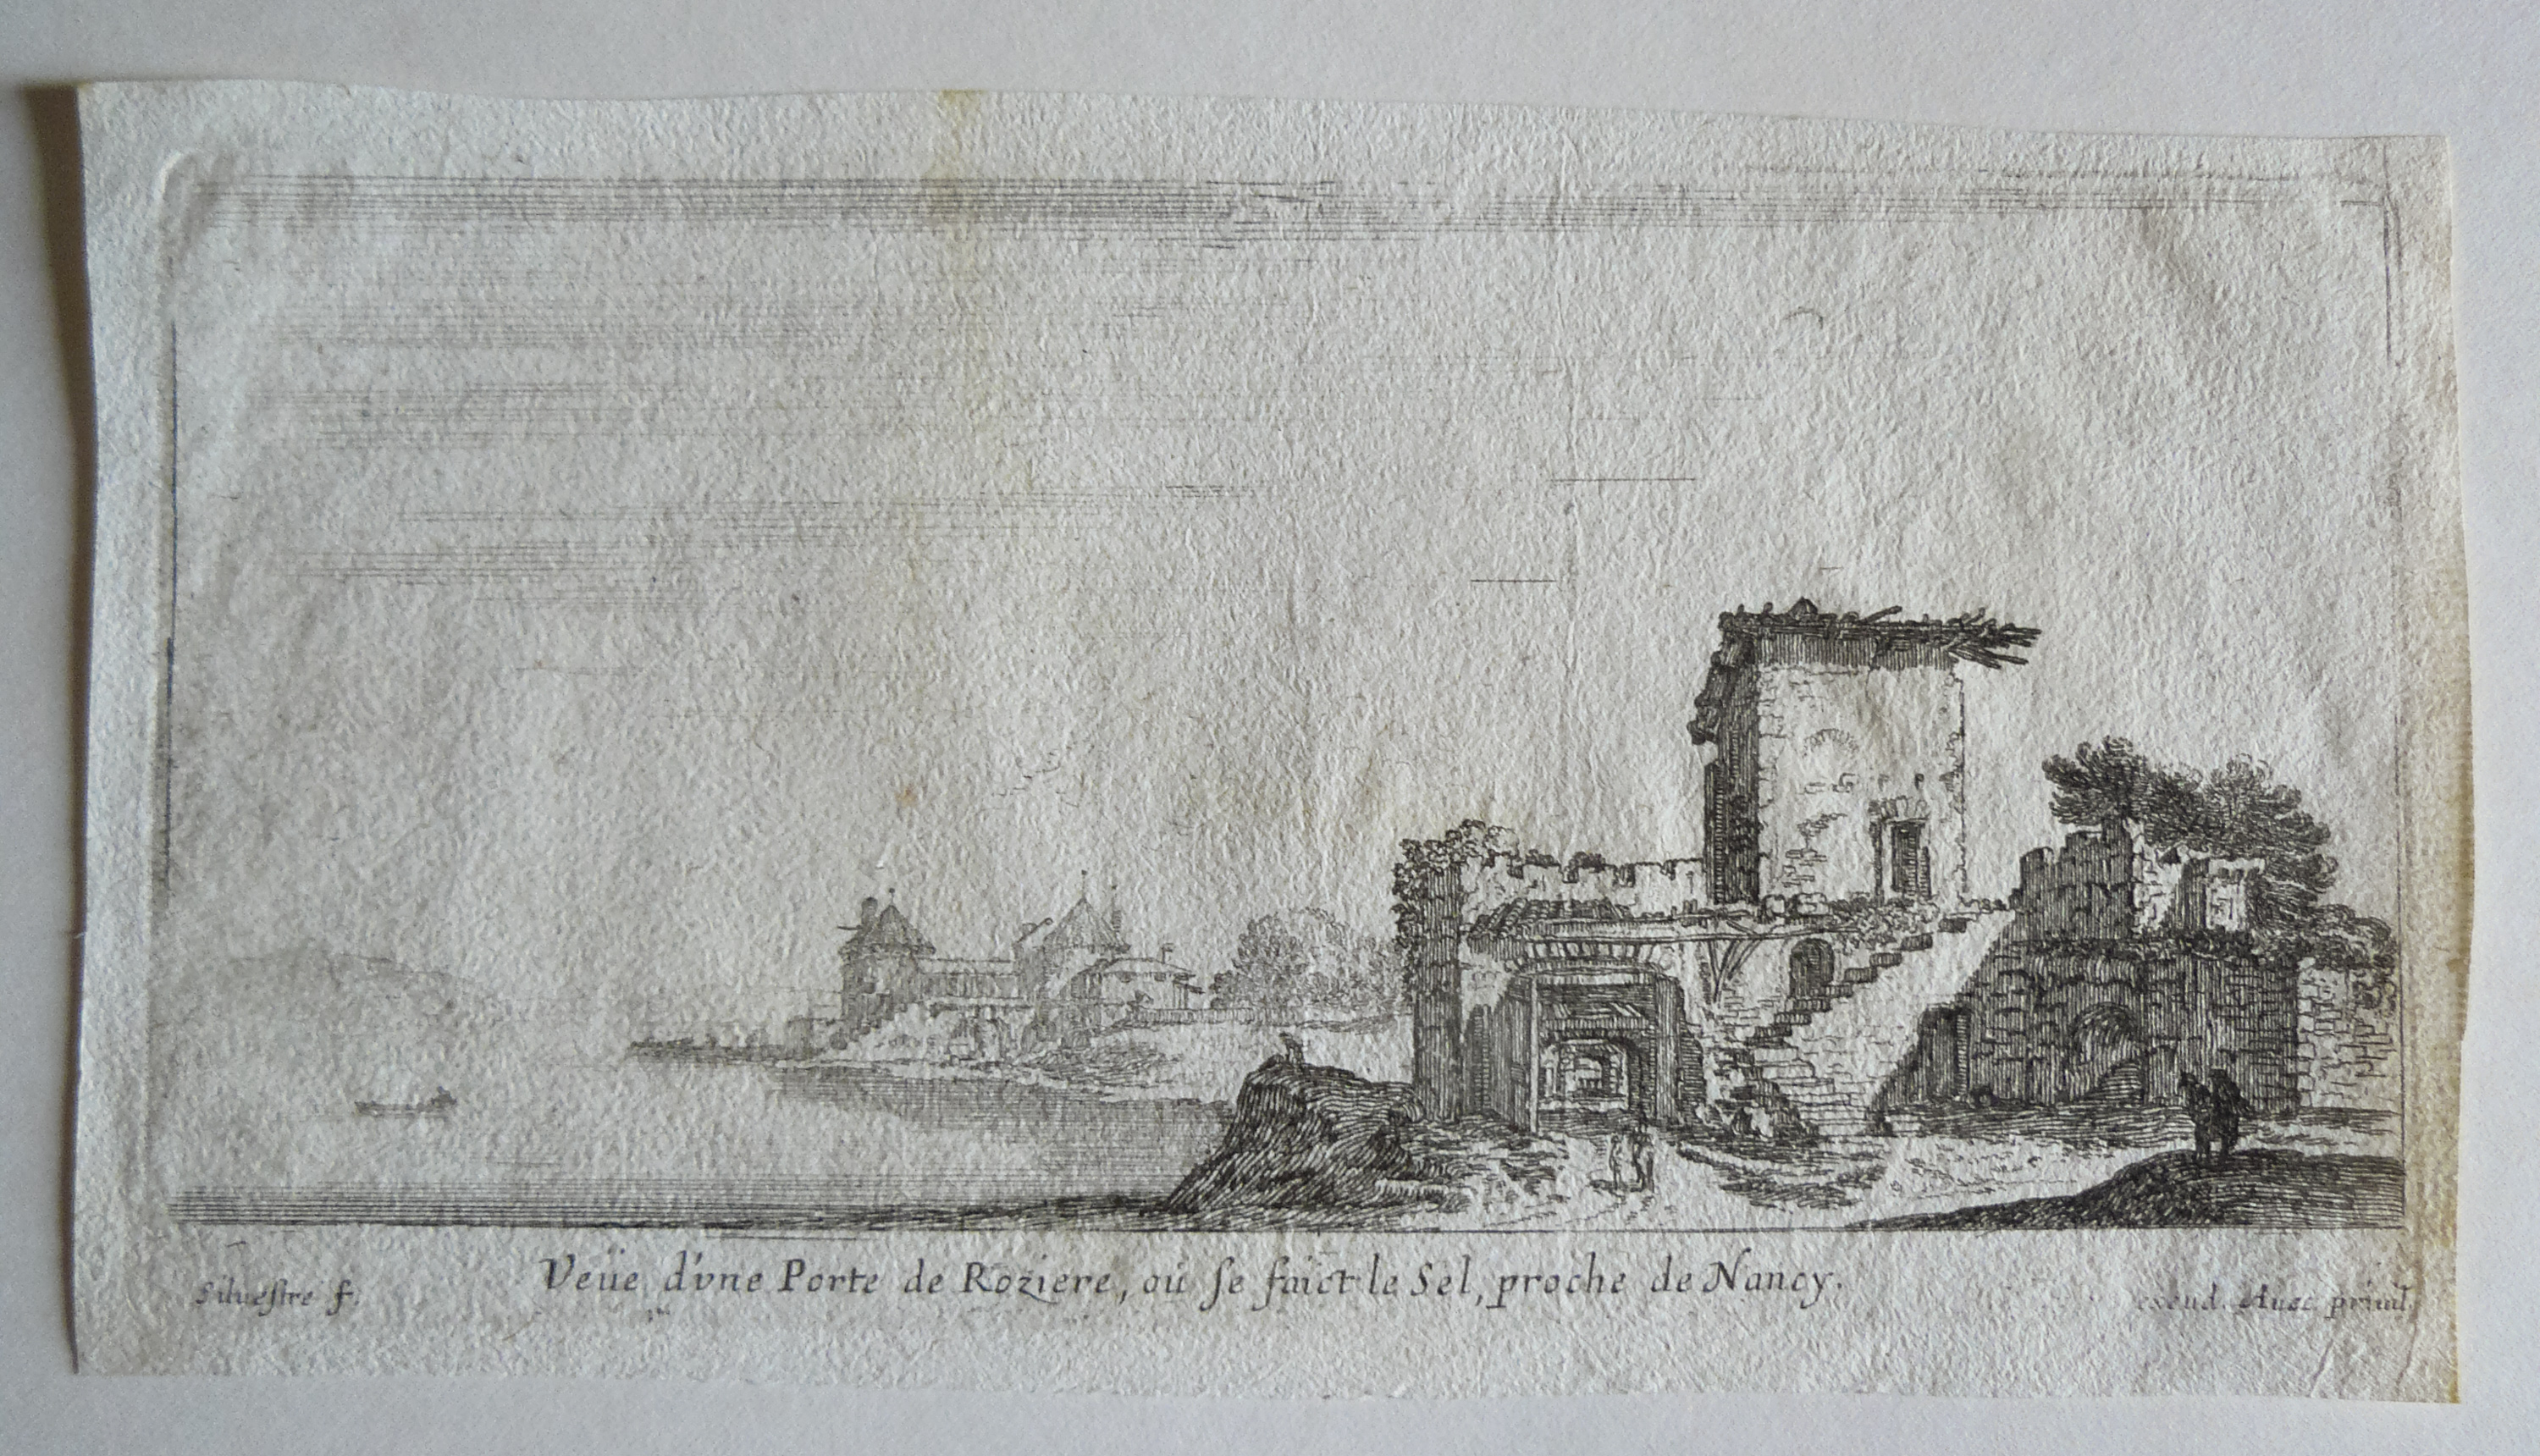 Silueſtre f.
Veüe d'vne Porte de Roziere, ou ſe faict le Sel, proche de Nancy.
excud. Auec priuil.